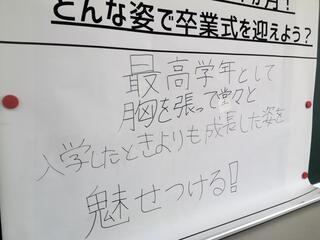 か月!
どんな姿で卒業式を迎えよう?
最高学年として
胸を張って堂々と
入学したときよりも成長した姿を
魅せつける!